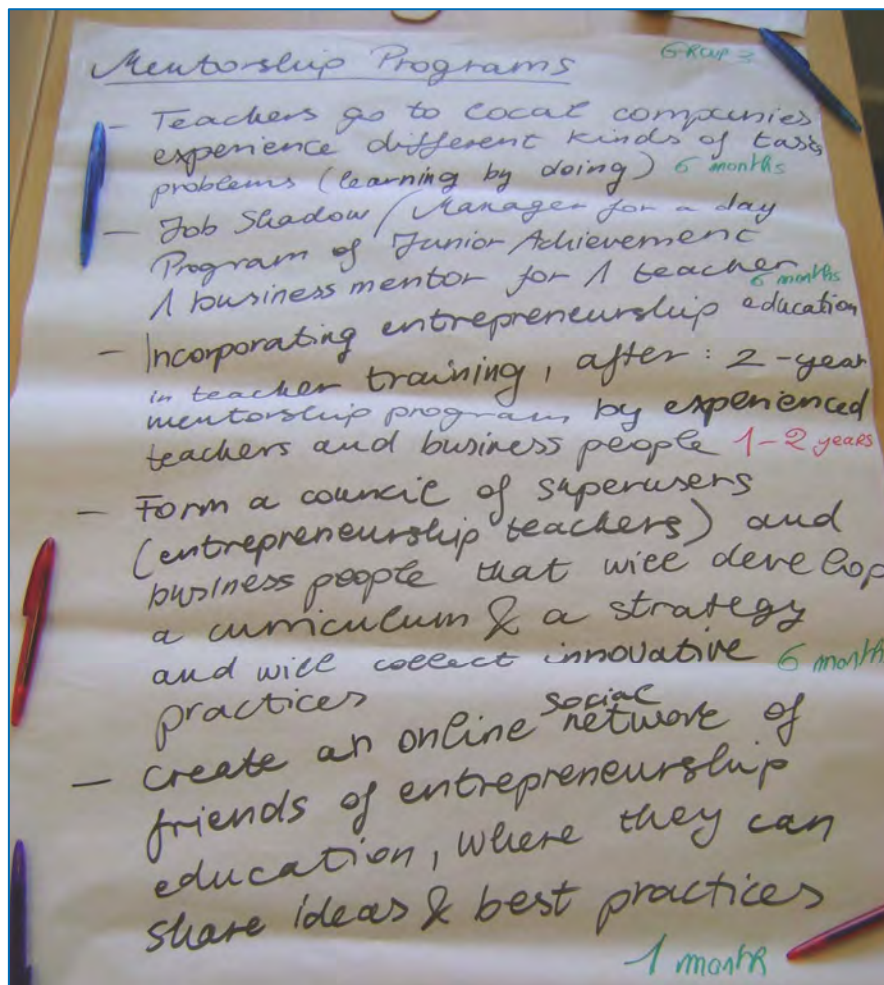 Mentorship Programs GROUP 3
- Teachers go to local companies
experience different kinds of tasks
problems (learning by doing) 6 months
- Job Shadow / Manager for a day
Program of Junior Achievement
1 business mentor for 1 teacher 6 months
- Incorporating entrepreneurship education
in teacher training, after: 2-year
mentorship program by experienced
teachers and business people 1-2 years
- Form a council of superusers
(entrepreneurship teachers) and
business people that will develop
a curriculum & a strategy
and will collect innovative 6 month
practices
- create an online social network of
friends of entrepreneurship
education, where they can
share ideas & best practices
1 month